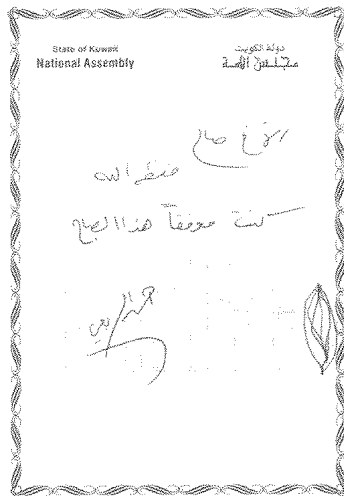 State of Kuwait
National Assembly
دولة الكويت
مجلس الأمة
الأخ صالح
حفظه الله
كنت موفقاً هذا الصباح